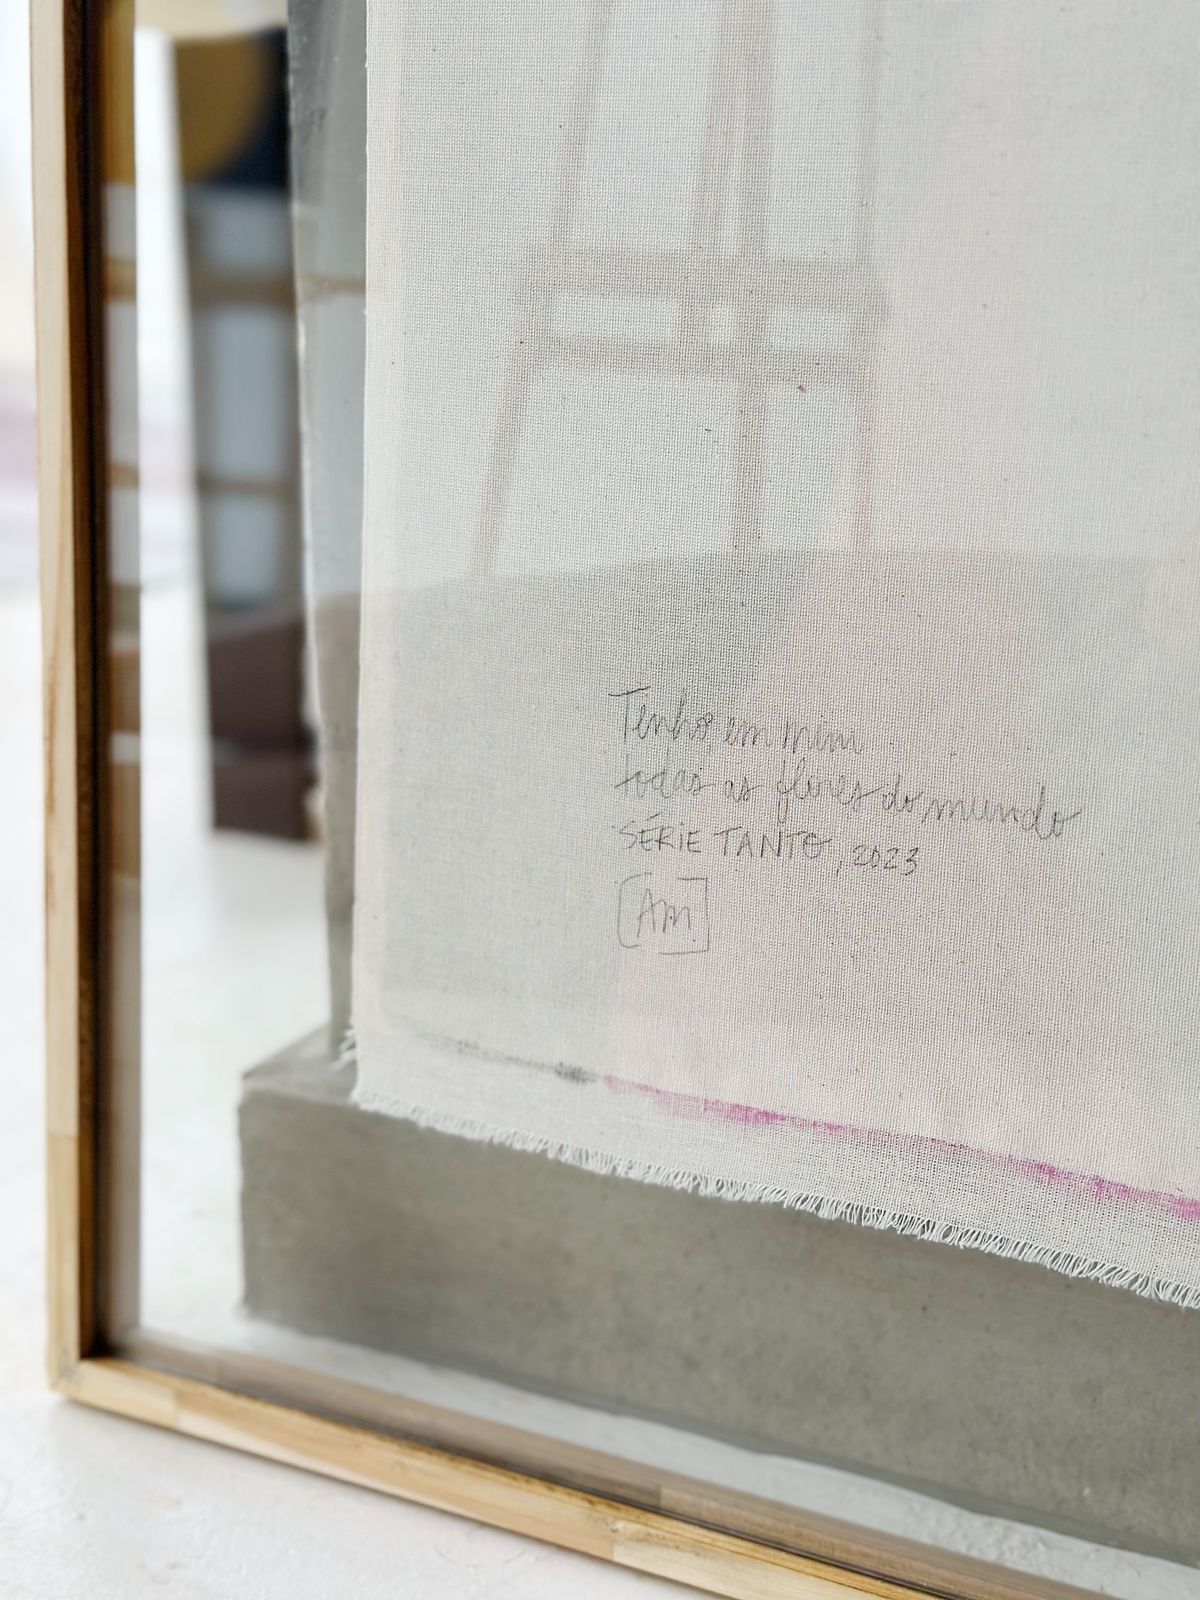 Tenho em mim
todas as flores do mundo
SÉRIE TANTO, 2023
[Am]